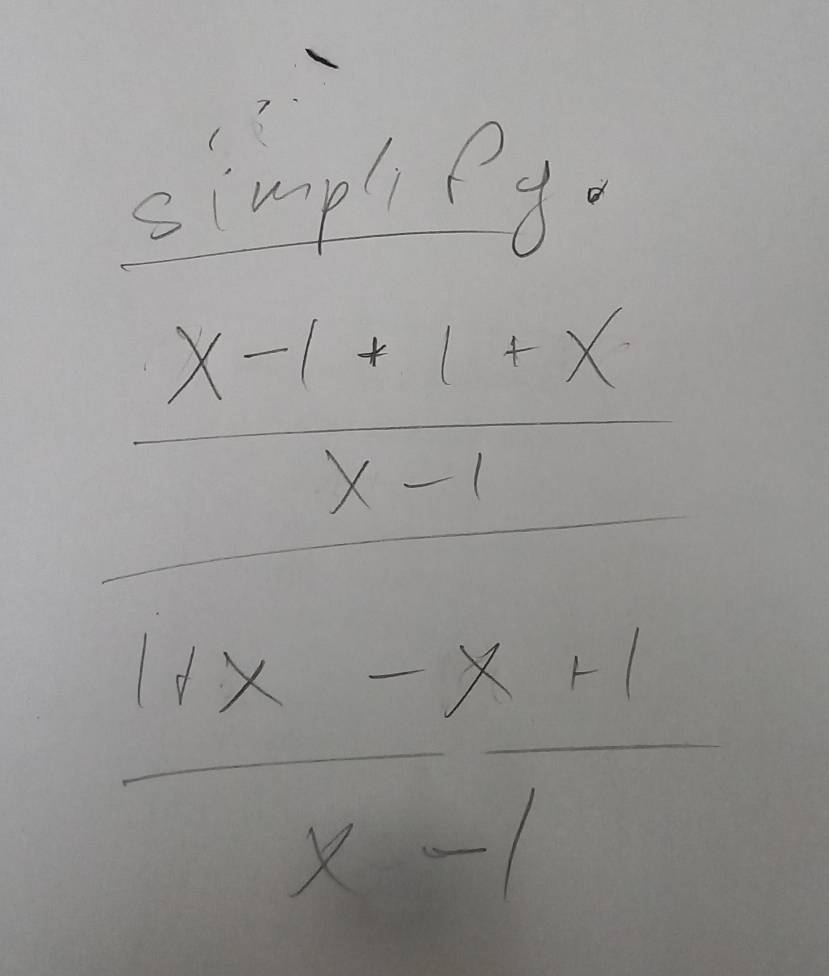 simplify.
x - 1 + 1 + x
x - 1
1 + x - x + 1
x - 1